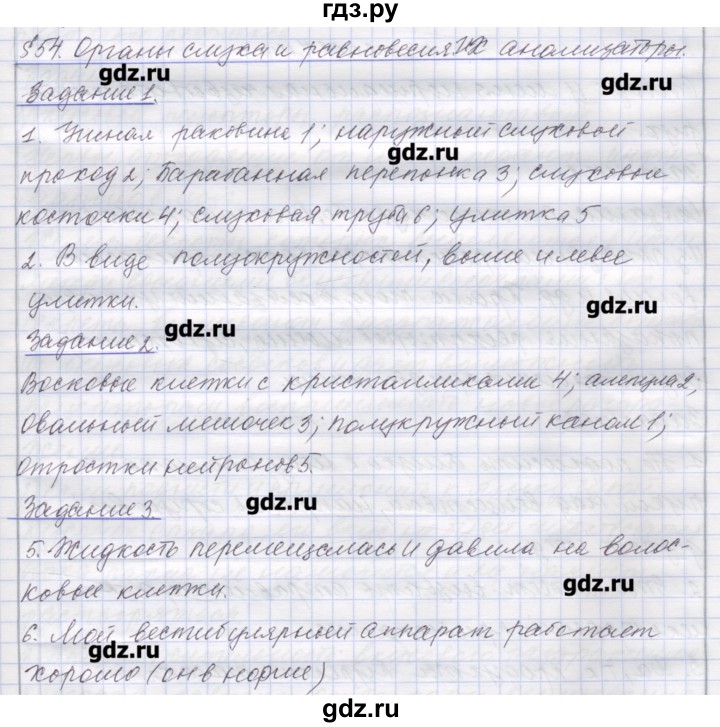 гдз.ру
§54. Органы слуха и равновесия. Их анализаторы.
gdz.ru gdz.ru
Задание 1.
1. Ушная раковина 1; наружный слуховой
gdz.ru
проход 2; барабанная перепонка 3; слуховые
косточки 4; слуховая труба 6; улитка 5
2. В виде полуокружностей, выше и левее
улитки.
gdz.ru
gdz.ru
Задание 2.
Восковые клетки с кристалликами 4; ампула 2;
Овальный мешочек 3; полукружный канал 1;
отростки нейронов 5.
gdz.ru
Задание 3.
5. Жидкость перемещалась и давила на волос-
ковые клетки.
gdz.ru
6. Мой вестибулярный аппарат работает
gdz.ru
хорошо (он в норме)
gdz.ru